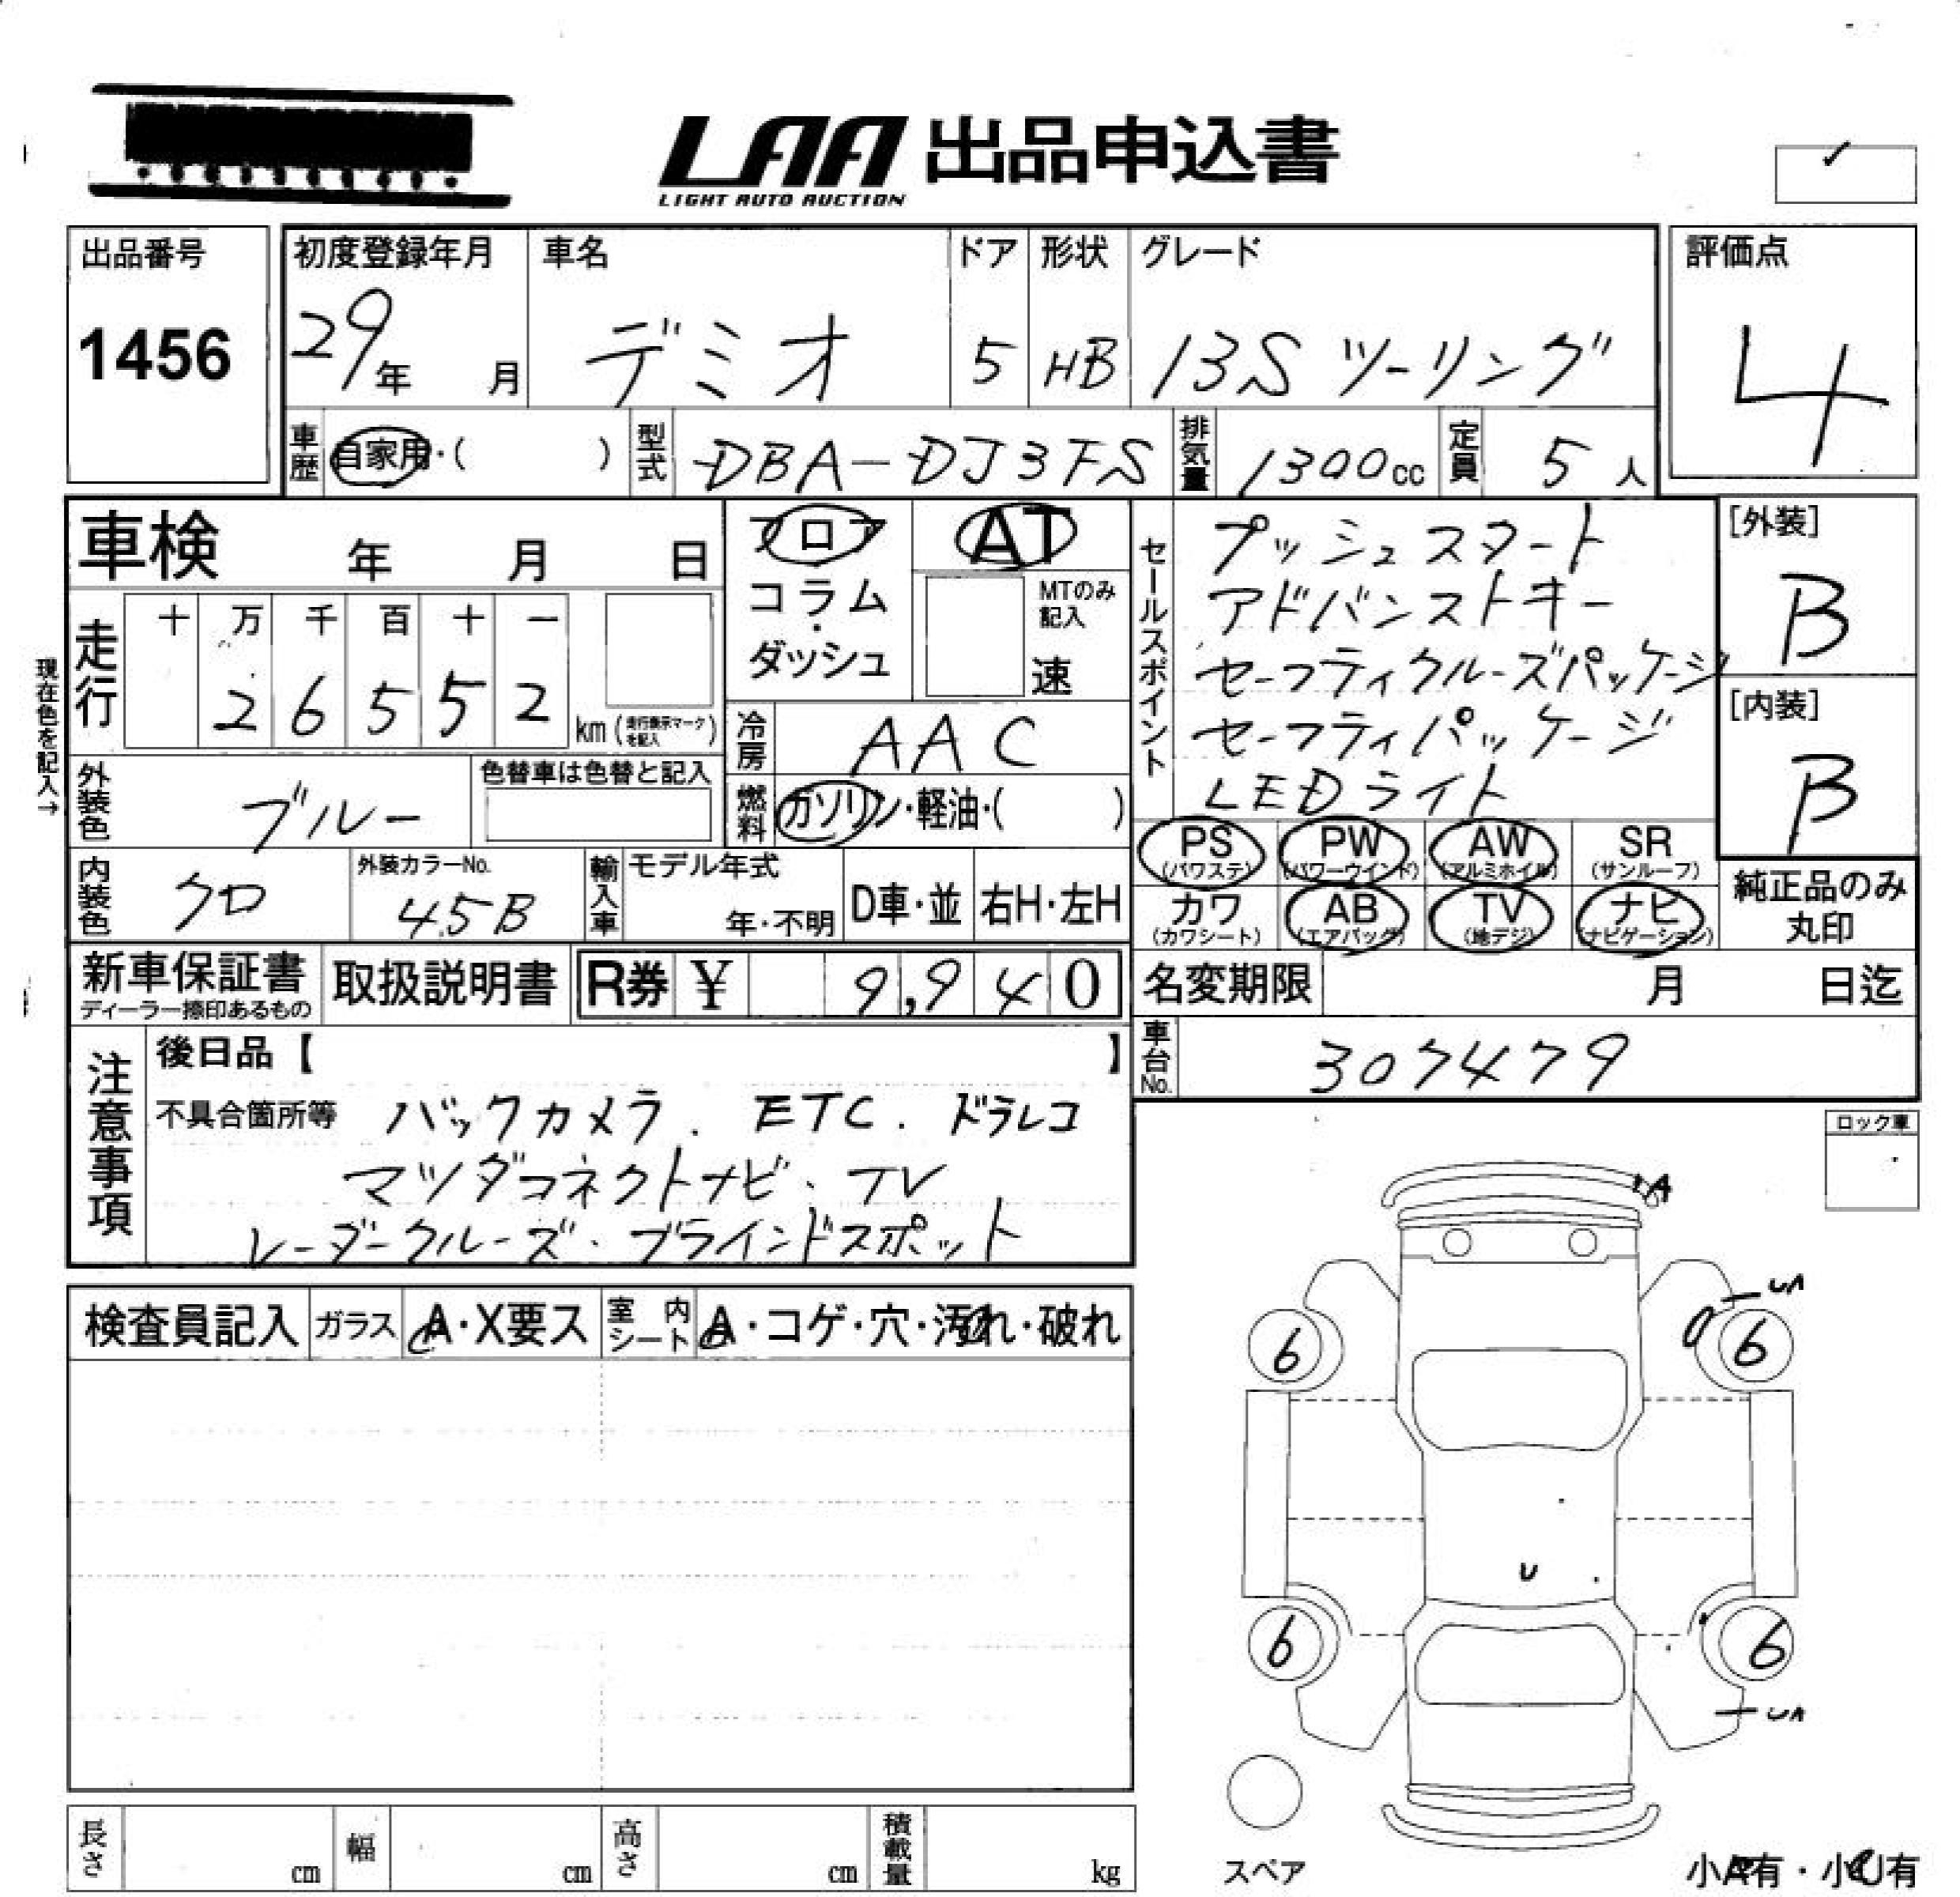 LAA 出品申込書
LIGHT AUTO AUCTION
出品番号
1456
初度登録年月
29年 月
車名
デミオ
ドア
5
形状
HB
グレード
13S ツーリング
評価点
4
車歴 自家用・( )
型式 DBA-DJ3FS
排気量 1300cc
定員 5人
車検 年 月 日
フロア
コラム
・
ダッシュ
AT
MTのみ
記入
速
セールスポイント
プッシュスタート
アドバンストキー
セーフティクルーズパッケージ
セーフティパッケージ
LEDライト
[外装]
B
[内装]
B
現在色を記入→
走行
十 万 千 百 十 一
2 6 5 5 2
km(走行表示マークを記入)
冷房 AAC
燃料 ガソリン・軽油・( )
外装色 ブルー
色替車は色替と記入
内装色 クロ
外装カラーNo.
45B
輸入車 モデル年式
年・不明
D車・並
右H・左H
PS (パワステ)
PW (パワーウインド)
AW (アルミホイル)
SR (サンルーフ)
カワ (カワシート)
AB (エアバッグ)
TV (地デジ)
ナビ (ナビゲーション)
純正品のみ
丸印
新車保証書
ディーラー捺印あるもの
取扱説明書
R券 ¥ 9,940
名変期限 月 日迄
車台No. 307479
注意事項
後日品【 】
不具合箇所等 バックカメラ. ETC. ドラレコ
マツダコネクトナビ、TV
レーダークルーズ、ブラインドスポット
ロック車
検査員記入
ガラス A・X要ス
室内シート A・コゲ・穴・汚れ・破れ
A
UA
6
6
U
6
6
UA
スペア
小A有・小U有
長さ cm
幅 cm
高さ cm
積載量 kg